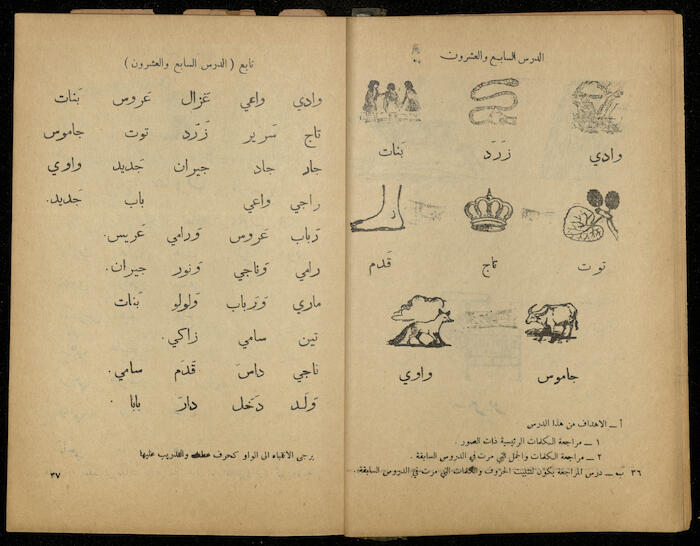 الدرس السابع والعشرون
وادي زَرَد بَنات
توت تاج قَدَم
جاموس واوي
أ ــ الاهداف من هذا الدرس
١ ــ مراجعة الكلمات الرئيسية ذات الصور .
٢ ــ مراجعة الكلمات والجمل التي مرت في الدروس السابقة .
ب ــ درس المراجعة يكون لتثبيت الحروف والكلمات التي مرت في الدروس السابقة .
٣٦
تابع ( الدرس السابع والعشرون )
وادي واعي غَزال عَروس بَنات
تاج سَرير زَرَد توت جاموس
جاد جاد جيران جَديد واوي
راجي واعي باب جَديد.
رَباب عَروس وَرامي عَريس.
رامي وَناجي وَنور جيران.
ماري وَرَباب وَلولو بَنات
تين سامي زاكي.
ناجي داسَ قَدَم سامي.
وَلَد دَخَل دارَ بابا .
يرجى الانتباه الى الواو كحرف عطف والتدريب عليها
٣٧